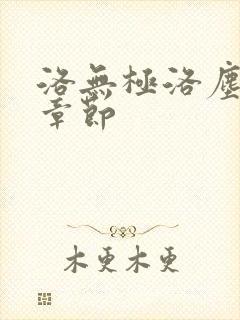 洛無極洛塵
章節
木更木更